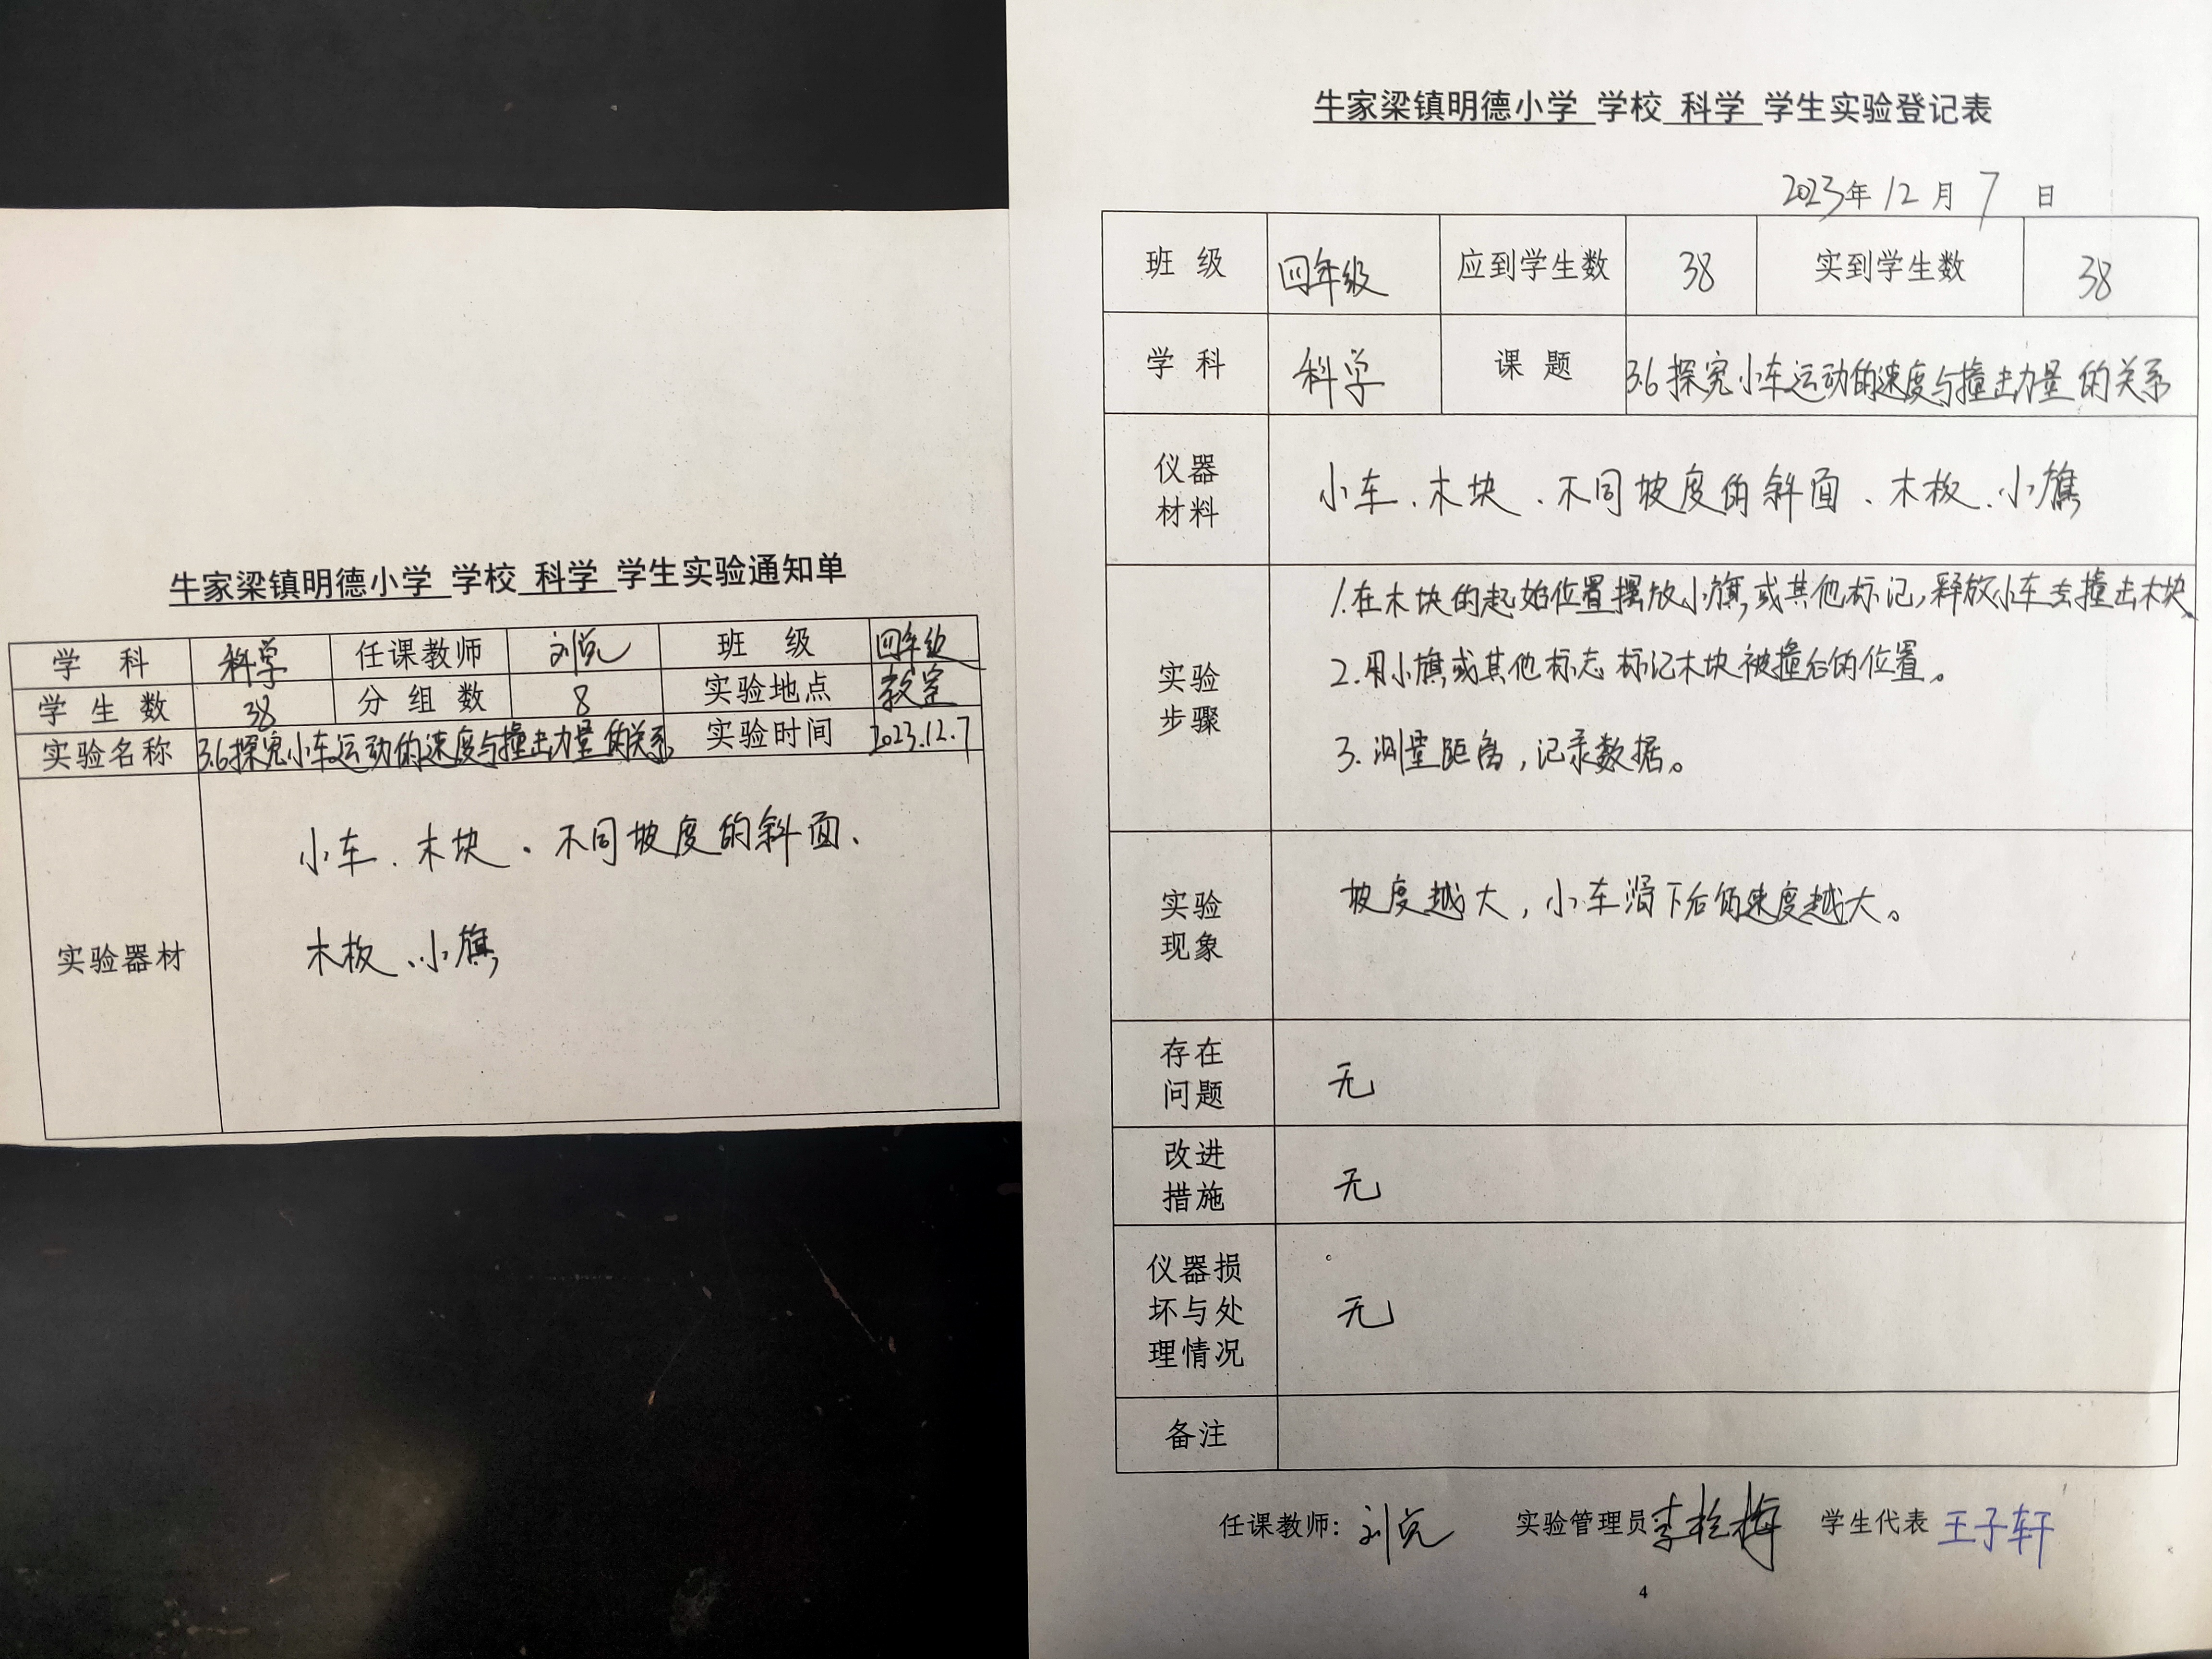 牛家梁镇明德小学 学校 科学 学生实验通知单
学 科 科学 任课教师 班 级 四年级
学 生 数 38 分 组 数 8 实验地点 教室
实验名称 3.6探究小车运动的速度与撞击力量的关系 实验时间 2023.12.7
实验器材
小车、木块、不同坡度的斜面、
木板、小旗
牛家梁镇明德小学 学校 科学 学生实验登记表
2023年12月7日
班 级 四年级 应到学生数 38 实到学生数 38
学 科 科学 课 题 3.6探究小车运动的速度与撞击力量的关系
仪器
材料
小车、木块、不同坡度的斜面、木板、小旗
实验
步骤
1.在木块的起始位置摆放小旗,或其他标记,释放小车去撞击木块
2.用小旗或其他标志标记木块被撞后的位置。
3.测量距离,记录数据。
实验
现象
坡度越大,小车滑下后的速度越大。
存在
问题
无
改进
措施
无
仪器损
坏与处
理情况
无
备注
任课教师: 实验管理员 学生代表 王子轩
4